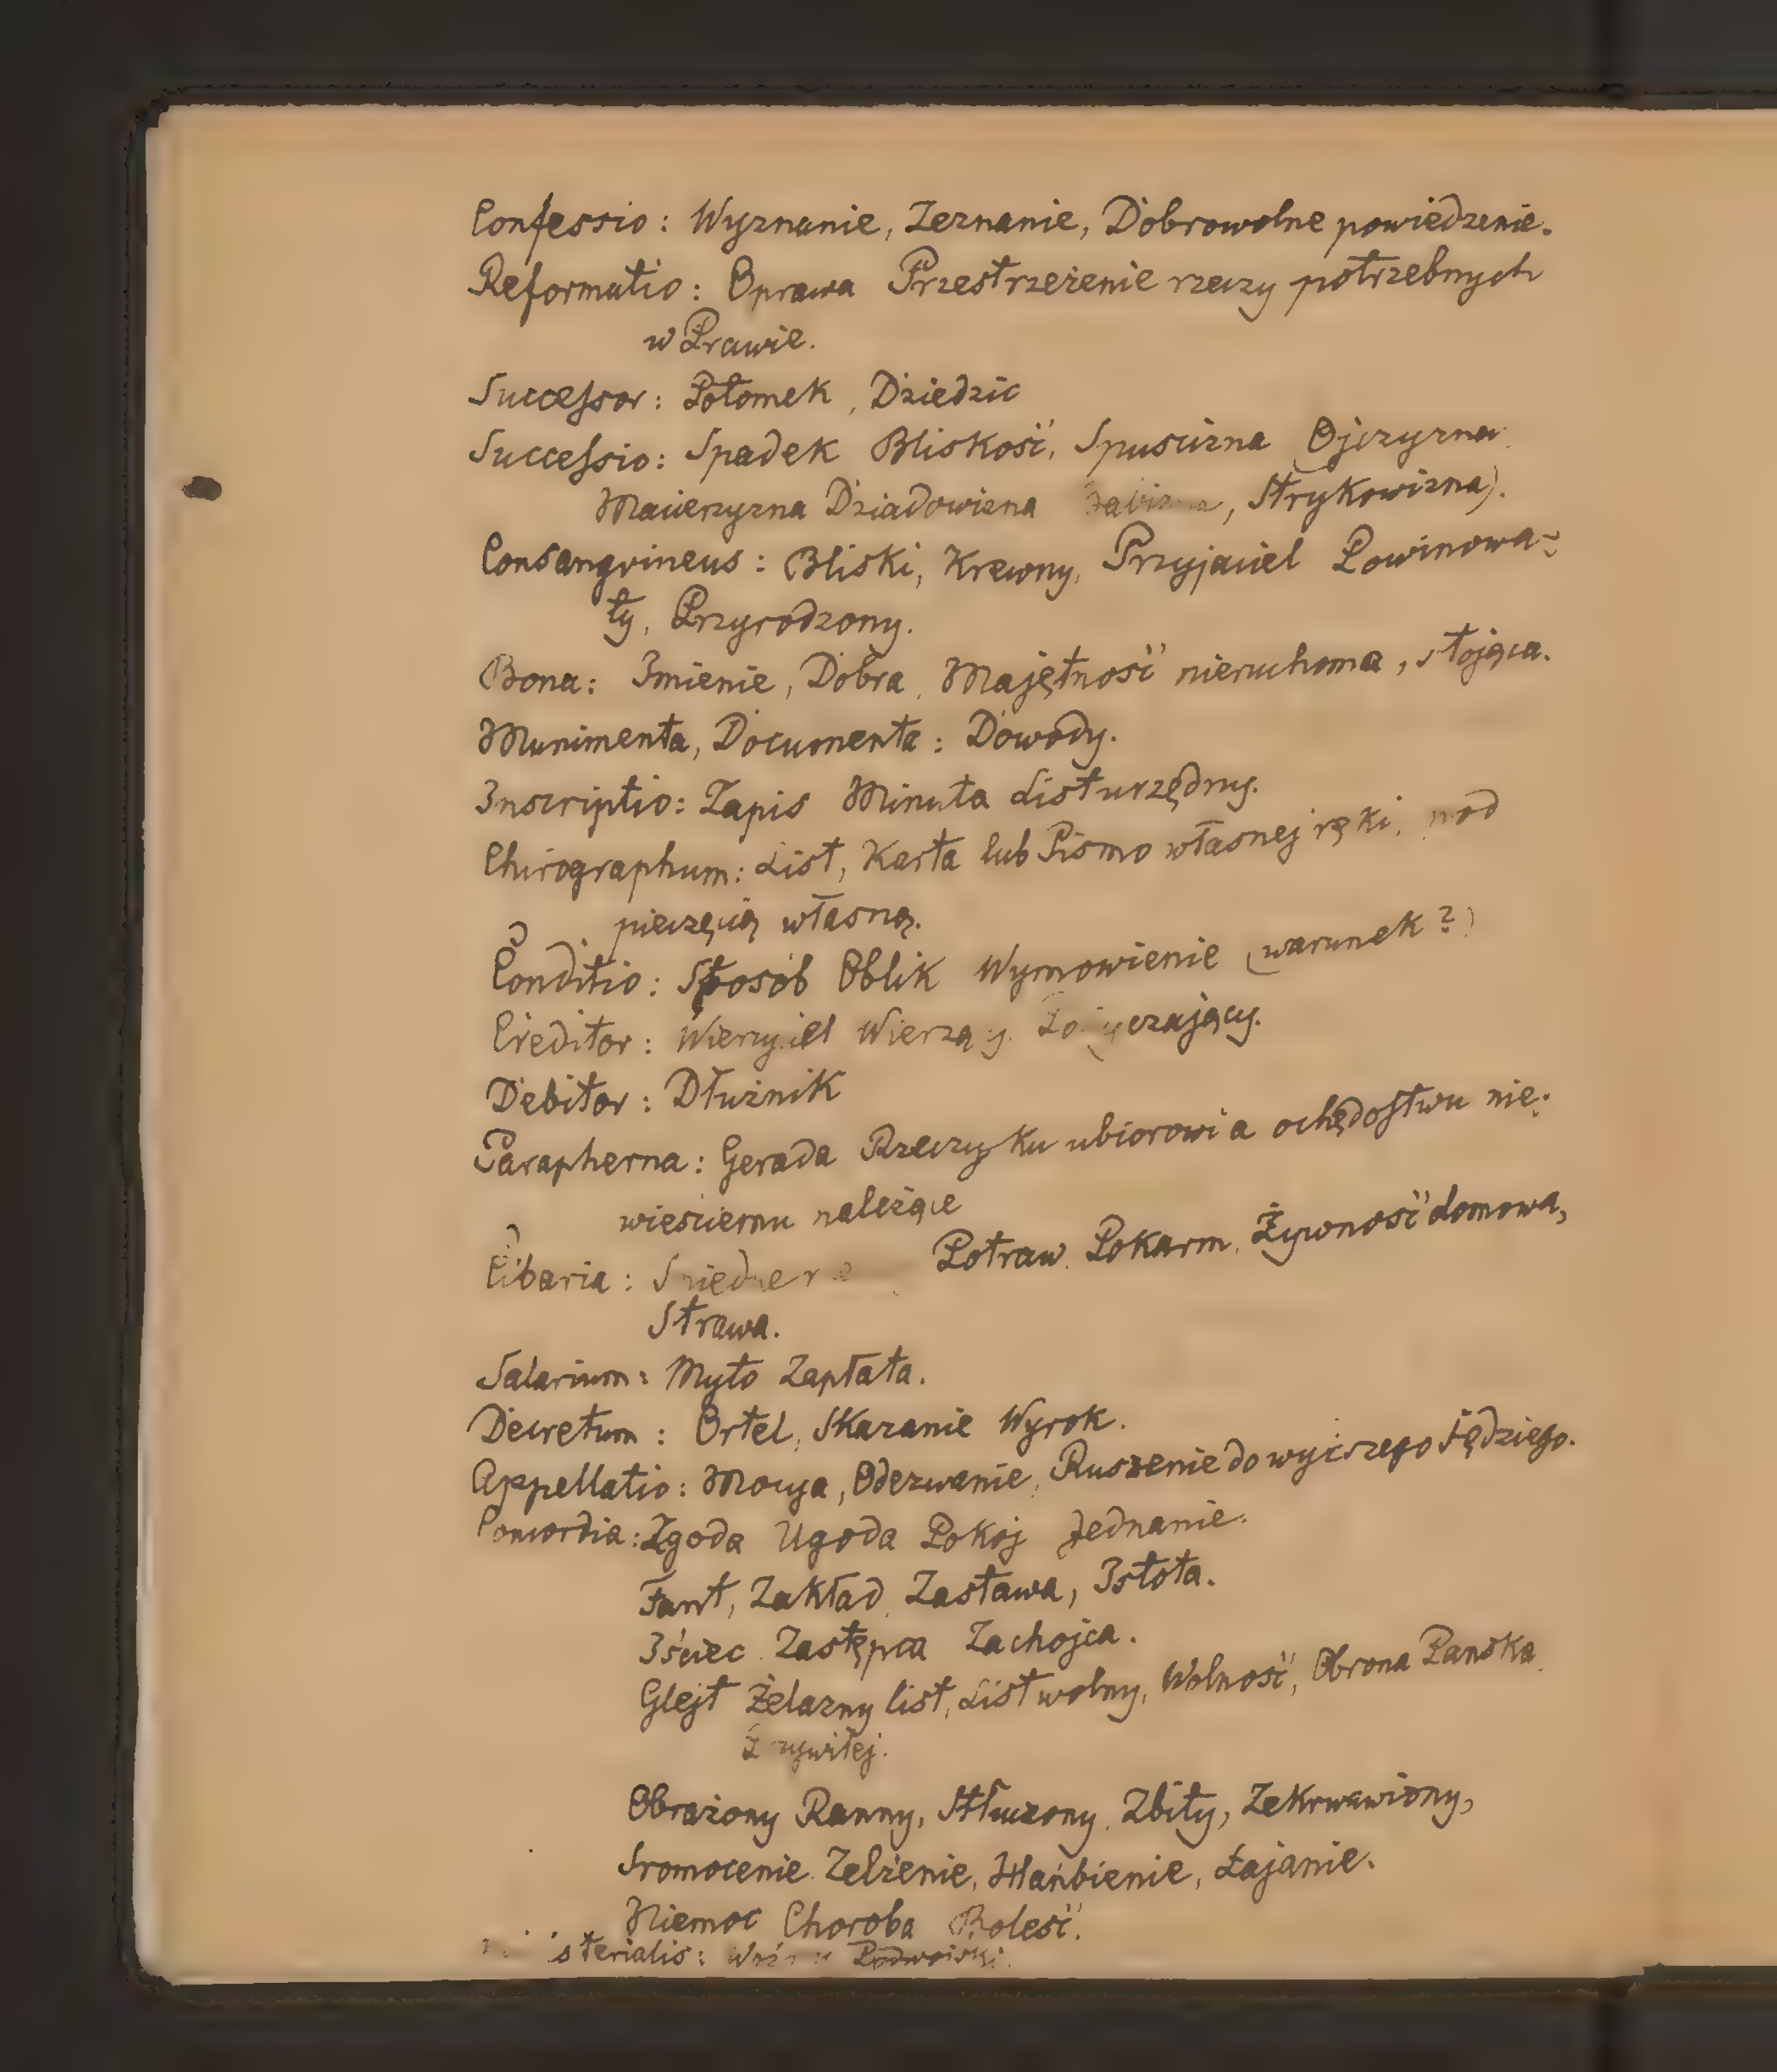 Confessio: Wyznanie, Zeznanie, Dobrowolne powiedzenie.
Reformatio: Oprawa Przestrzeżenie rzeczy potrzebnych
w Prawie.
Successor: Potomek, Dziedzic
Successio: Spadek Bliskość, Spuścizna Ojczyzna
Macierzyzna Dziadowizna , Strykowizna).
Consangvineus: Bliski, Krewny, Przyjaciel Powinowa-
ty, Przyrodzony.
Bona: Imienie, Dobra, Majętność nieruchoma, stojąca.
Munimenta, Documenta: Dowody.
Inscriptio: Zapis Minuta List urzędny.
Chirographum: List, Karta lub Pismo własnej ręki, pod
pieczęcią własną.
Conditio: Sposób Oblik Wymowienie (warunek?)
Creditor: Wierzyciel
Debitor: Dłużnik
Parapherna: Gerada Rzeczy ku ubiorowi a ochędostwu nie-
wieściemu należące
Cibaria: Potraw. Pokarm, Żywność domowa,
Strawa.
Salarium: Myto Zapłata.
Decretum: Ortel, Skazanie Wyrok.
Appellatio: Mocya, Odezwanie, Ruszenie do wyższego sędziego.
Concordia: Zgoda Ugoda Pokój Jednanie.
Fant, Zakład, Zastawa, Istota.
Iściec Zastępca Zachojca.
Glejt Żelazny list, List wolny, Wolność, Obrona Pańska

Obrażony Ranny, Stłuczony, Zbity, Zekrwawiony,
Sromocenie Zelżenie, Hańbienie, Łajanie.
Niemoc Choroba Boleść.
Podwojski.